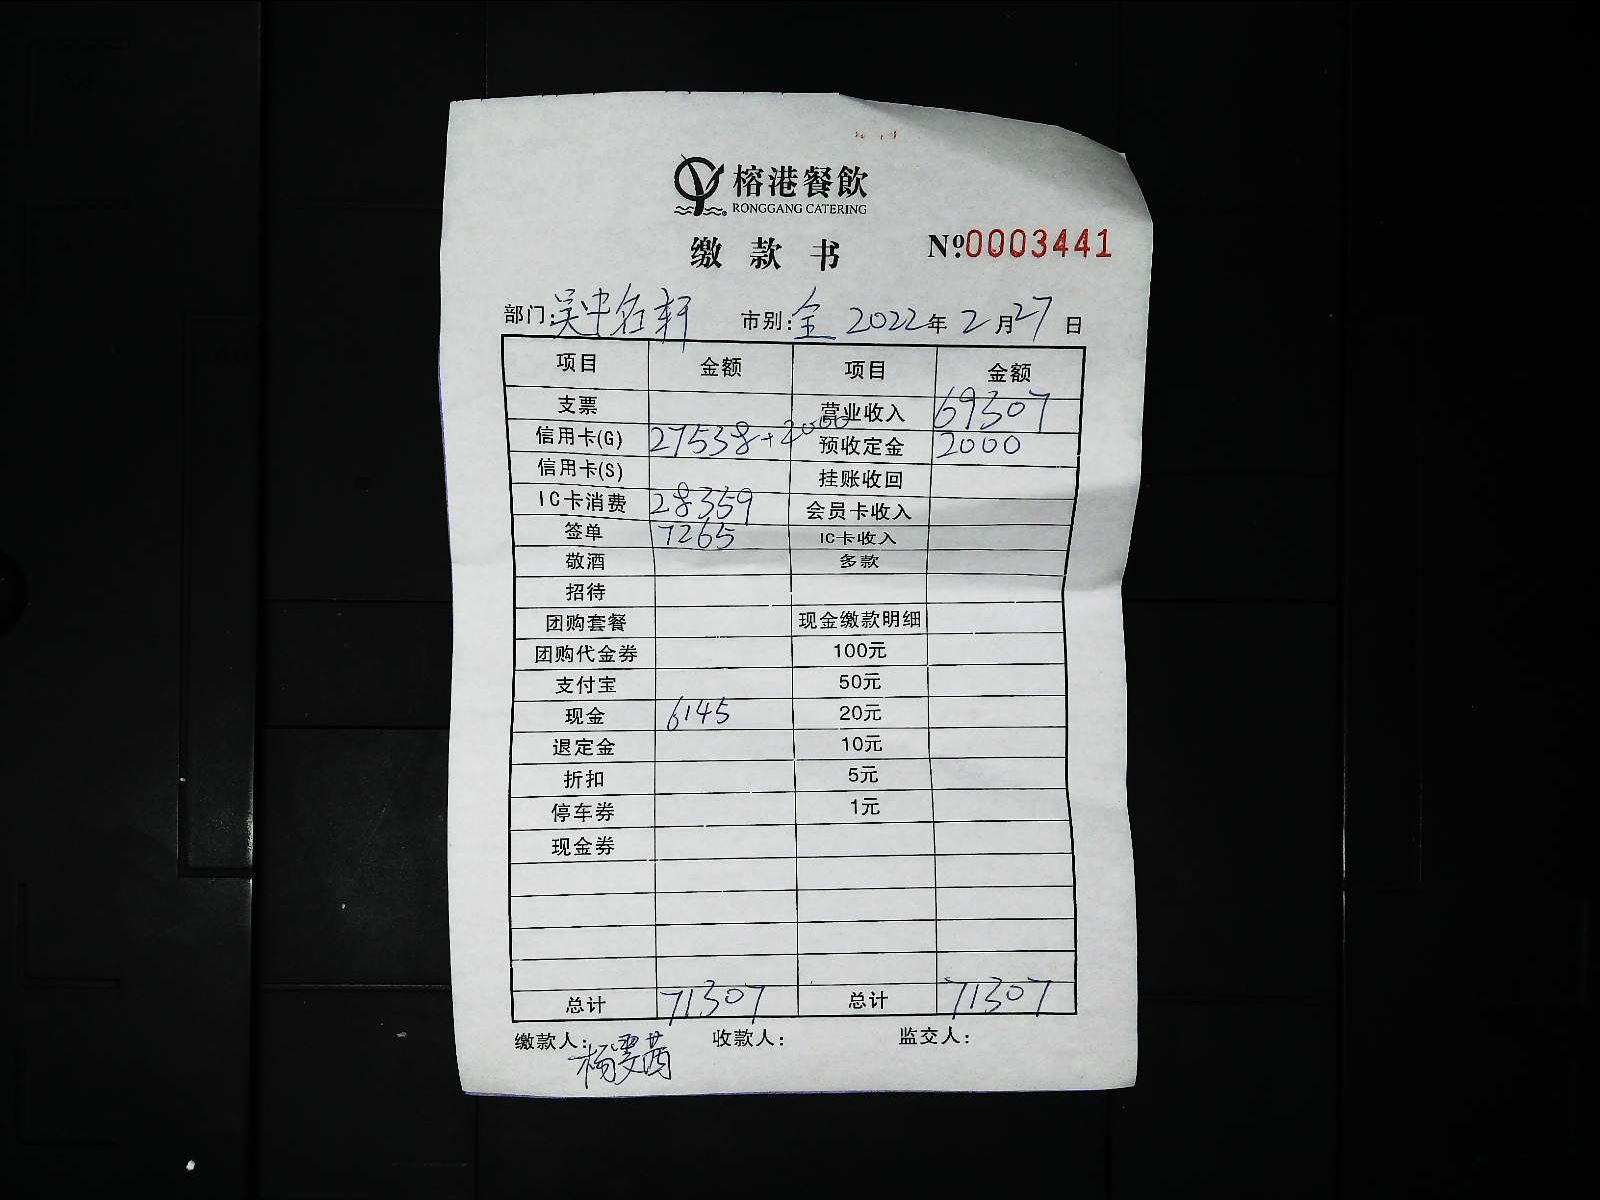 榕港餐飲
RONGGANG CATERING
缴款书 №0003441
部门:吴中名轩 市别:全 2022年2月27日
项目 金额 项目 金额
支票 营业收入 69307
信用卡(G) 27538+2000 预收定金 2000
信用卡(S) 挂账收回
IC卡消费 28359 会员卡收入
签单 7265 IC卡收入
敬酒 多款
招待
团购套餐 现金缴款明细
团购代金券 100元
支付宝 50元
现金 6145 20元
退定金 10元
折扣 5元
停车券 1元
现金券
总计 71307 总计 71307
缴款人:杨雯茜 收款人: 监交人: